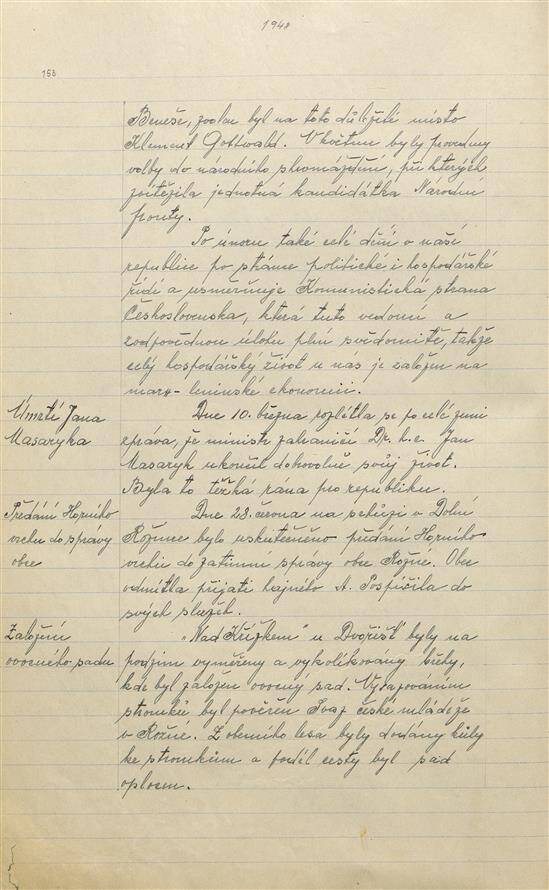 1948
153
Beneše, zvolen byl na toto důležité místo
Klement Gottwald. V květnu byly provedeny
volby do národního shromáždění, při kterých
zvítězila jednotná kandidátka Národní
fronty.
Po únoru také celé dění v naší
republice po stránce politické i hospodářské
řídí a usměrňuje Komunistická strana
Československa, která tuto vedoucí a
zodpovědnou úlohu plní svědomitě, takže
celý hospodářský život u nás je založen na
marx-leninské ekonomii.
Úmrtí Jana
Masaryka
Dne 10. března rozlétla se po celé zemi
zpráva, že ministr zahraničí Dr. h. c. Jan
Masaryk ukončil dobrovolně svůj život.
Byla to těžká rána pro republiku.
Předání Horního
vrchu do správy
obce
Dne 28. června na schůzi v Dolní
Rožínce bylo uskutečněno předání Horního
vrchu do zatímní správy obce Rožné. Obec
odmítla přijati hajného A. Pospíšila do
svých služeb.
Založení
ovocného sadu
"Nad Křížkem" u Dvořišť byly na
podzim vyměřeny a vykolíkovány břehy,
kde byl založen ovocný sad. Vysazováním
stromků byl pověřen Svaz české mládeže
v Rožné. Z obecního lesa byly dodány kůly
ke stromkům a podél cesty byl sad
oplocen.